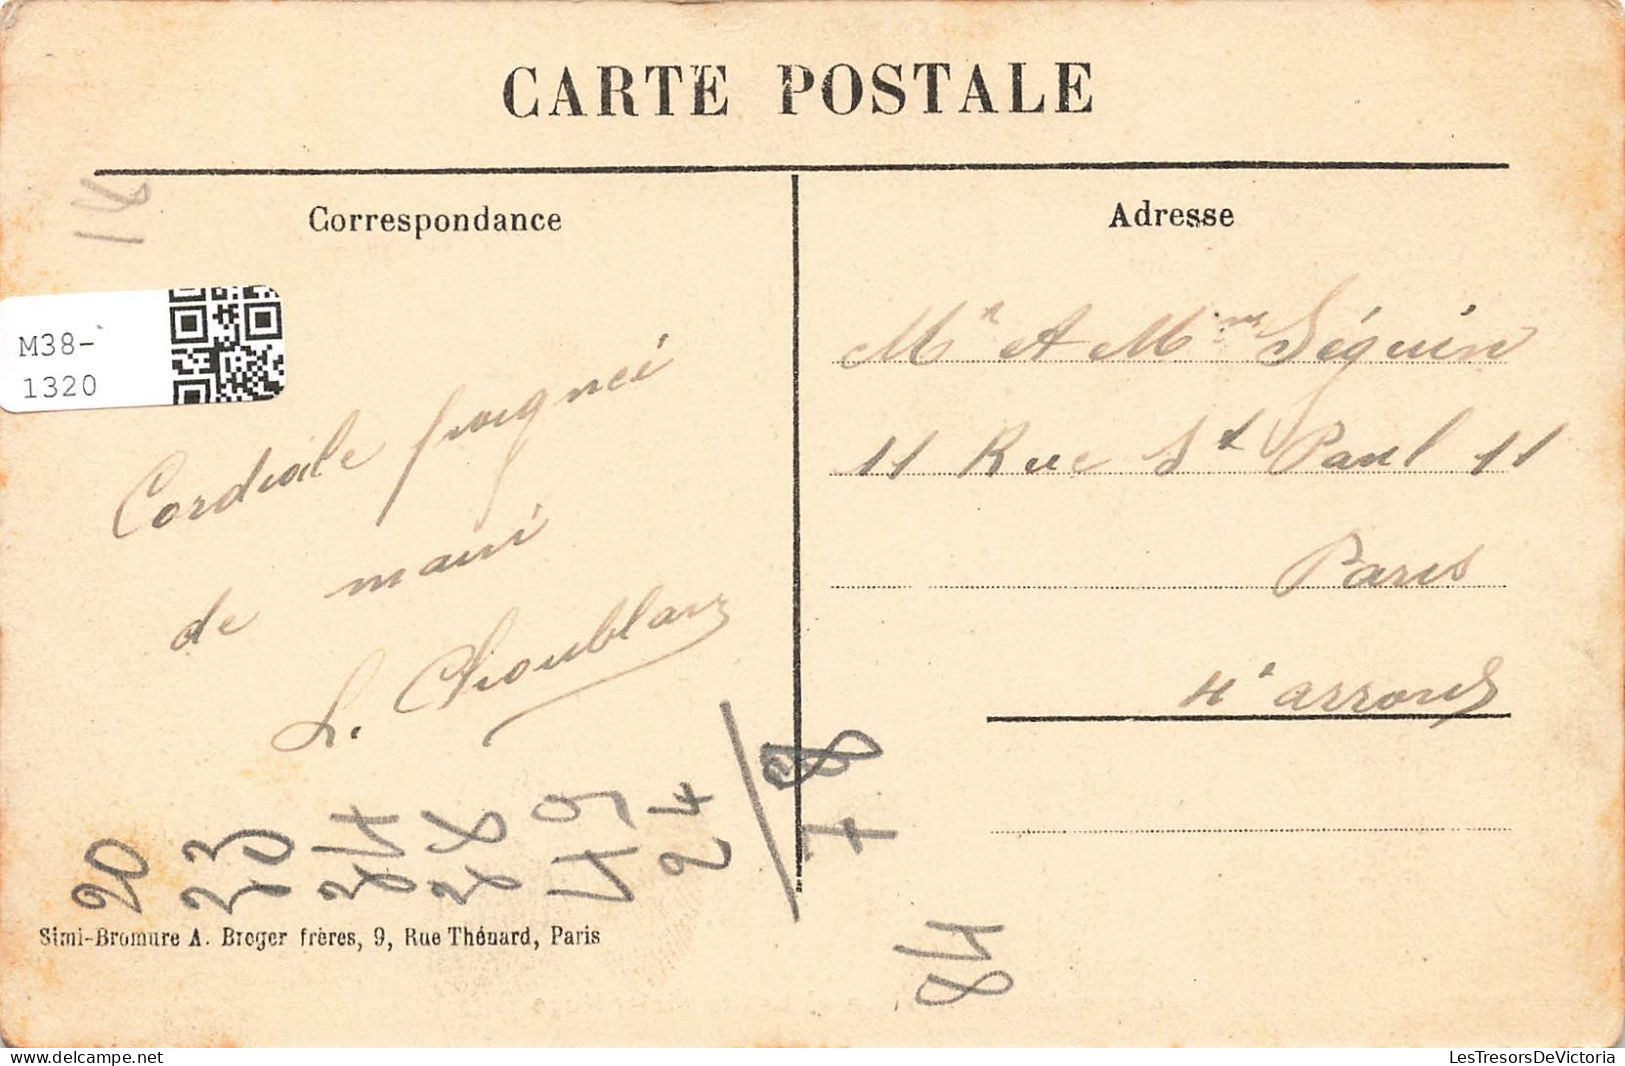 CARTE POSTALE
Correspondance
Adresse
14
M38-
1320
Cordiale poignéi
de main
L. Choublanz
Mr et Mme Séguin
11 Rue St Paul 11
Paris
4e arrond
20
23
24
28
24
78
84
Simi-Bromure A. Breger frères, 9, Rue Thénard, Paris
LesTresorsDeVictoria